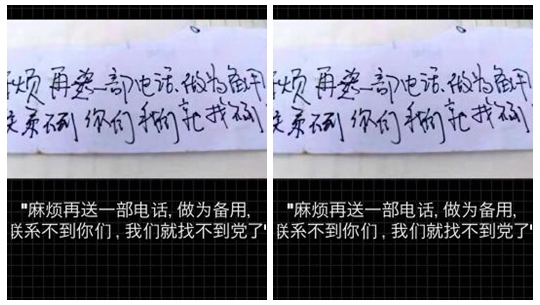 烦再送一部电话.做为备用
联系不到你们我们就找不到
"麻烦再送一部电话, 做为备用,
联系不到你们, 我们就找不到党了"
烦再送一部电话.做为备用
联系不到你们我们就找不到
"麻烦再送一部电话, 做为备用,
联系不到你们, 我们就找不到党了"